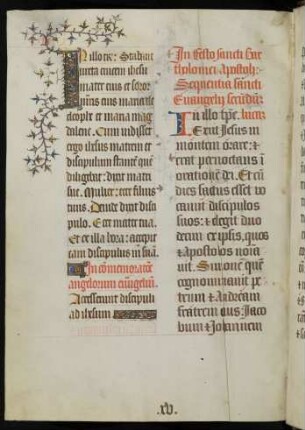 In illo tempr: Stabant
iuxta crucem ihesu
mater eius et soror
matris eius maria cle
ophe et maria mag
dalene. Cum vidisset
ergo ihesus matrem et
discipulum stantē quē
diligebat: dixit matri
sue. Mulier: ecce filius
tuus. Deinde dixit disci
pulo. Ecce mater tua.
Et ex illa hora: accepit
eam discipulus in suā.
In cōmemoratiōe
angelorum euāgeliū.
Accesserunt discipuli
ad ihesum
In festo sancti bar
tholomei apostoli:
Sequentia sancti
Euangelij secūdū:
In illo tpre. lucā
Exiit Jesus in
montem orare: et
erat pernoctans ī
oratione dei. Et cū
dies factus esset vo
cauit discipulos
suos: et elegit duo
decim ex ipsis, quos
et apostolos nomi
nauit. Simonē quē
cognominauit pe
trum et Andream
fratrem eius Jaco
bum et Johannem
.xv.